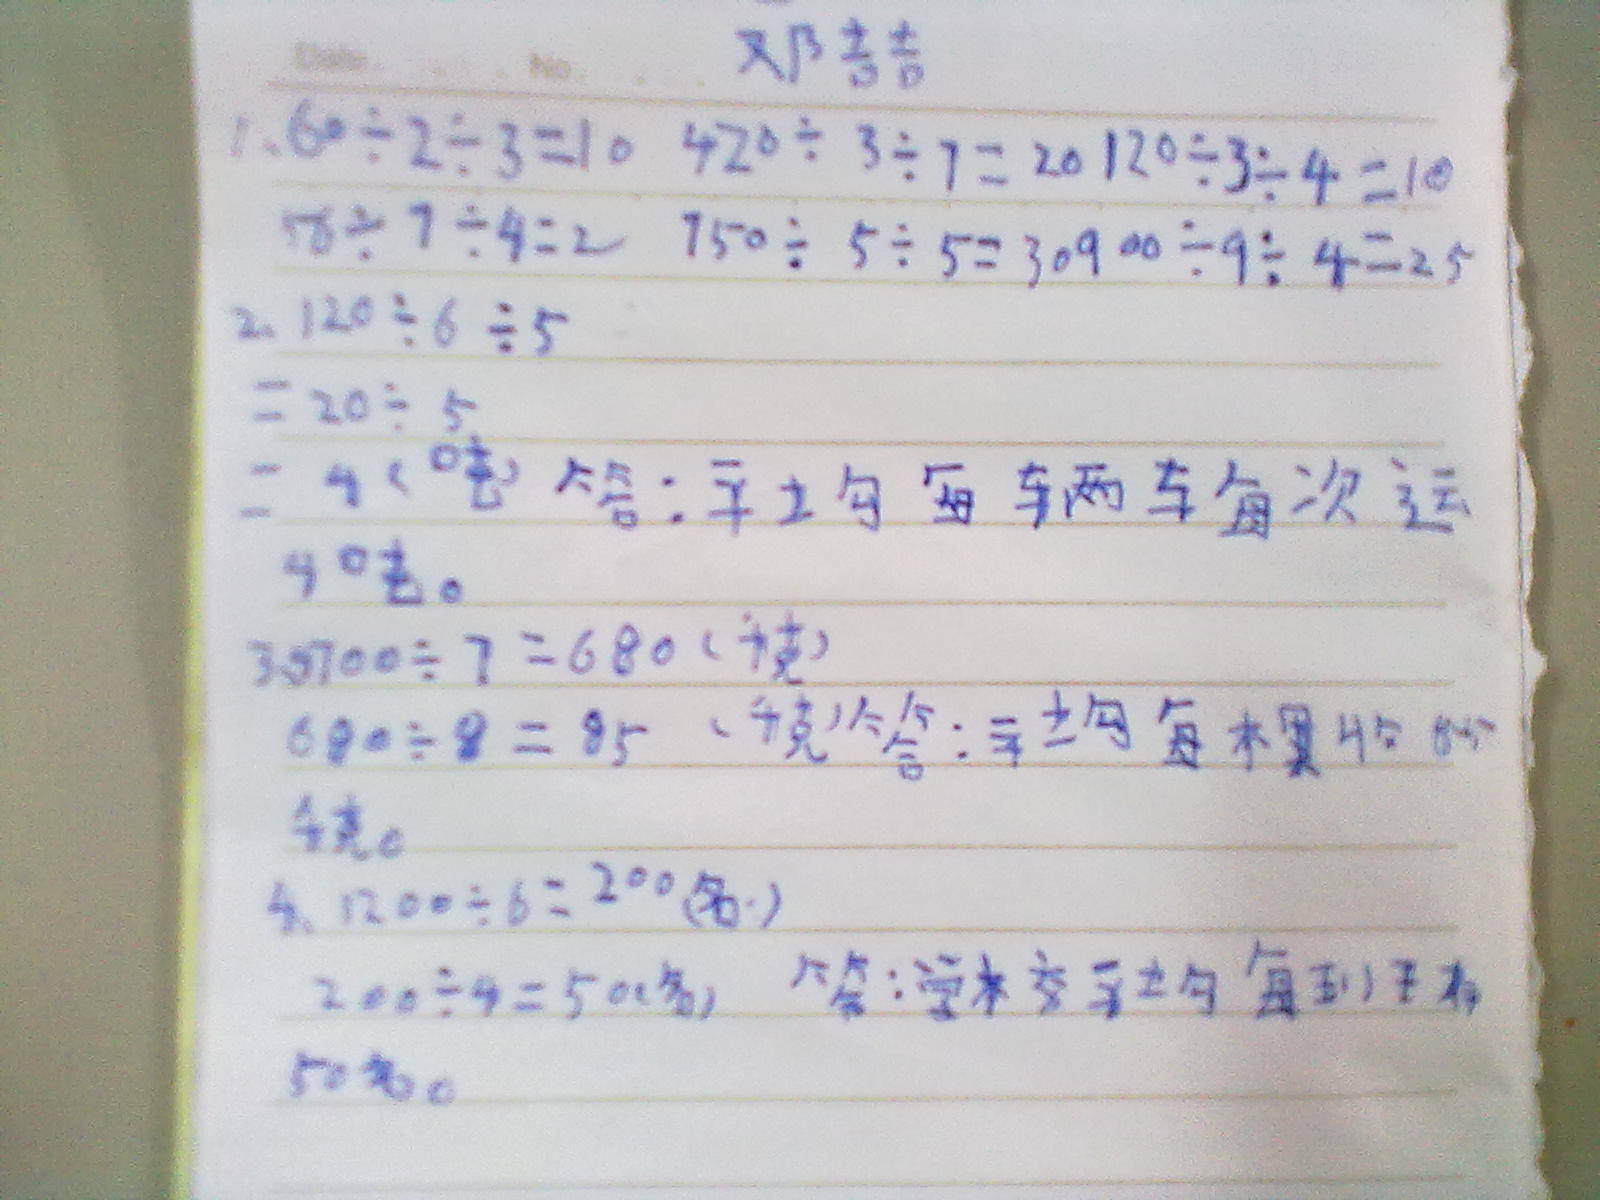 Date No.
邓喆喆
1. 60÷2÷3=10 420÷3÷7=20 120÷3÷4=10
56÷7÷4=2 750÷5÷5=30 900÷9÷4=25
2. 120÷6÷5
=20÷5
=4(吨) 答:平均每车两车每次运
4吨。
3. 5700÷7=680(千克)
680÷8=85 (千克) 答:平均每棵收85
千克。
4. 1200÷6=200(名)
200÷4=50(名) 答:学校平均每班有
50名。